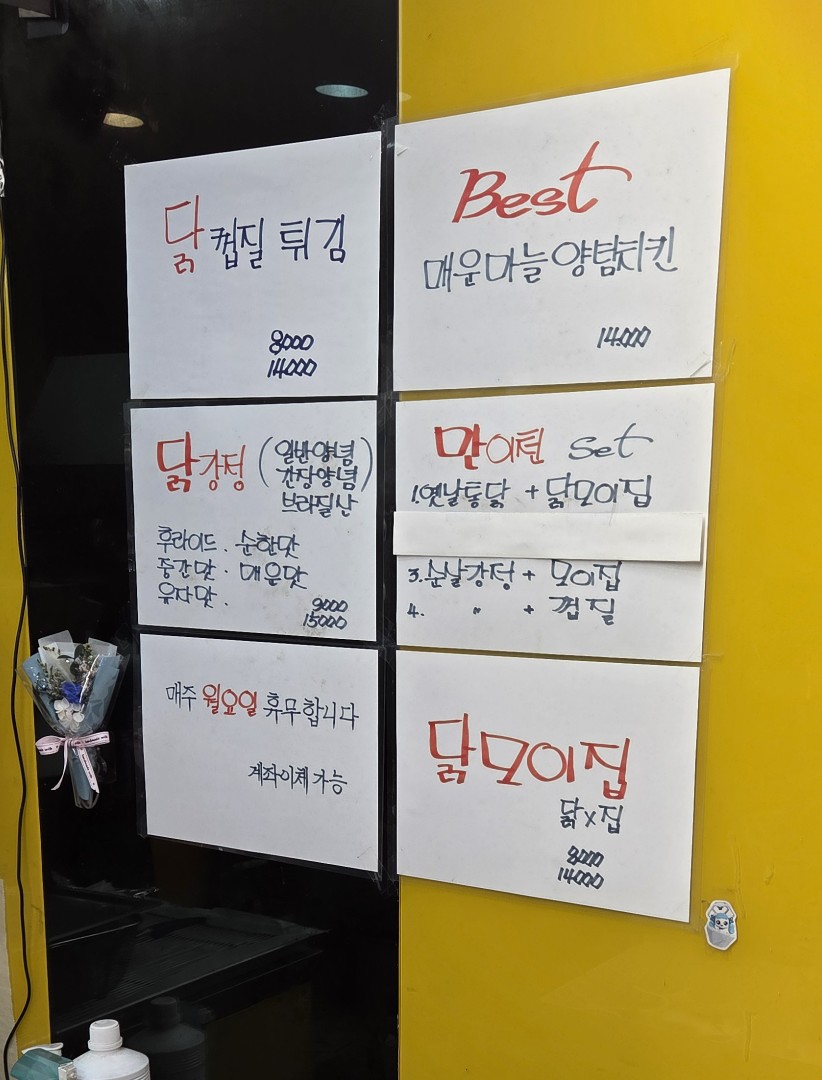 닭껍질 튀김
8000
14000
Best
매운마늘양념치킨
14.000
닭강정 (일반양념
간장양념)
브라질산
후라이드 . 순한맛
중간맛 . 매운맛
유자맛 .
9000
15000
만이튄 set
1.옛날통닭 + 닭모이집
3.순살강정 + 모이집
4. 〃 + 껍질
매주 월요일 휴무합니다
계좌이체 가능
닭모이집
닭x집
8000
14000